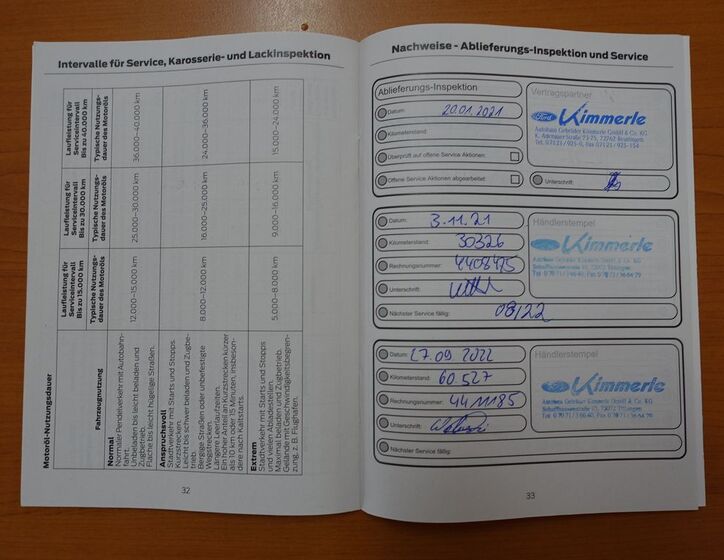 Intervalle für Service, Karosserie- und Lackinspektion
Motoröl-Nutzungsdauer
Fahrzeugnutzung
Laufleistung für
Serviceintervall
Bis zu 15.000 km
Laufleistung für
Serviceintervall
Bis zu 30.000 km
Laufleistung für
Serviceintervall
Bis zu 40.000 km
Typische Nutzungs-
dauer des Motoröls
Typische Nutzungs-
dauer des Motoröls
Typische Nutzungs-
dauer des Motoröls
Normal
Normaler Pendelverkehr mit Autobahn-
fahrt.
Unbeladen bis leicht beladen und
Zugbetrieb.
Flache bis leicht hügelige Straßen.
12.000–15.000 km
25.000–30.000 km
36.000–40.000 km
Anspruchsvoll
Stadtverkehr mit Starts und Stopps.
Kurzstrecken.
Leicht bis schwer beladen und Zugbe-
trieb.
Bergige Straßen oder unbefestigte
Wegstrecken.
Längere Leerlaufzeiten.
Ein hoher Anteil an Kurzstrecken kürzer
als 10 km oder 15 Minuten, insbeson-
dere nach Kaltstarts.
8.000–12.000 km
16.000–25.000 km
24.000–36.000 km
Extrem
Stadtverkehr mit Starts und Stopps
und vielen Abladestellen.
Maximal beladen und Zugbetrieb.
Gelände mit Geschwindigkeitsbegren-
zung, z. B. Flughafen.
5.000–8.000 km
9.000–16.000 km
15.000–24.000 km
32
Nachweise - Ablieferungs-Inspektion und Service
Ablieferungs-Inspektion
Datum: 20.01.2021
Kilometerstand:
Überprüft auf offene Service Aktionen:
Offene Service Aktionen abgearbeitet:
Vertragspartner
Ford Kimmerle
Autohaus Gebrüder Kimmerle GmbH & Co. KG
K. Adenauer Straße 23-25, 72762 Reutlingen
Tel. 07121 / 925-0, Fax 07121 / 925-154
Unterschrift:
Datum: 3.11.21
Kilometerstand: 30326
Rechnungsnummer: 4408475
Unterschrift:
Nächster Service fällig: 08/22
Händlerstempel
Ford Kimmerle
Autohaus Gebrüder Kimmerle GmbH & Co. KG
Schaffhausenstraße 15, 72072 Tübingen
Datum: 27.09 2022
Kilometerstand: 60.527
Rechnungsnummer: 4411185
Unterschrift:
Nächster Service fällig:
Händlerstempel
Ford Kimmerle
Autohaus Gebrüder Kimmerle GmbH & Co. KG
33